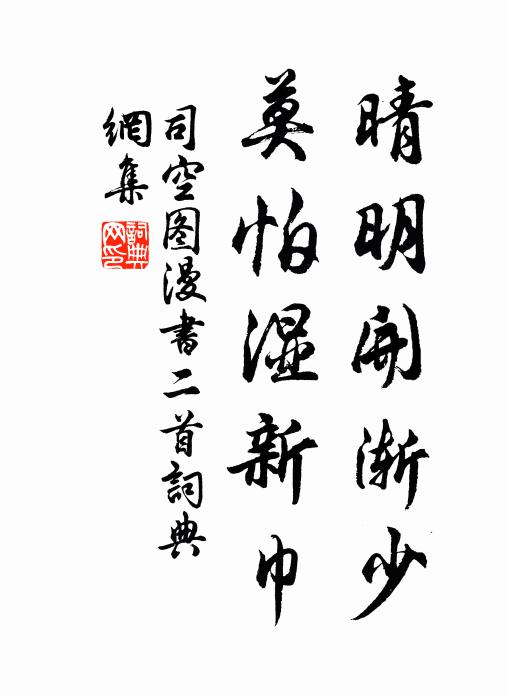 晴明開漸少
莫怕湿新巾
司空图漫書二首詞典
網集
詞典
网印